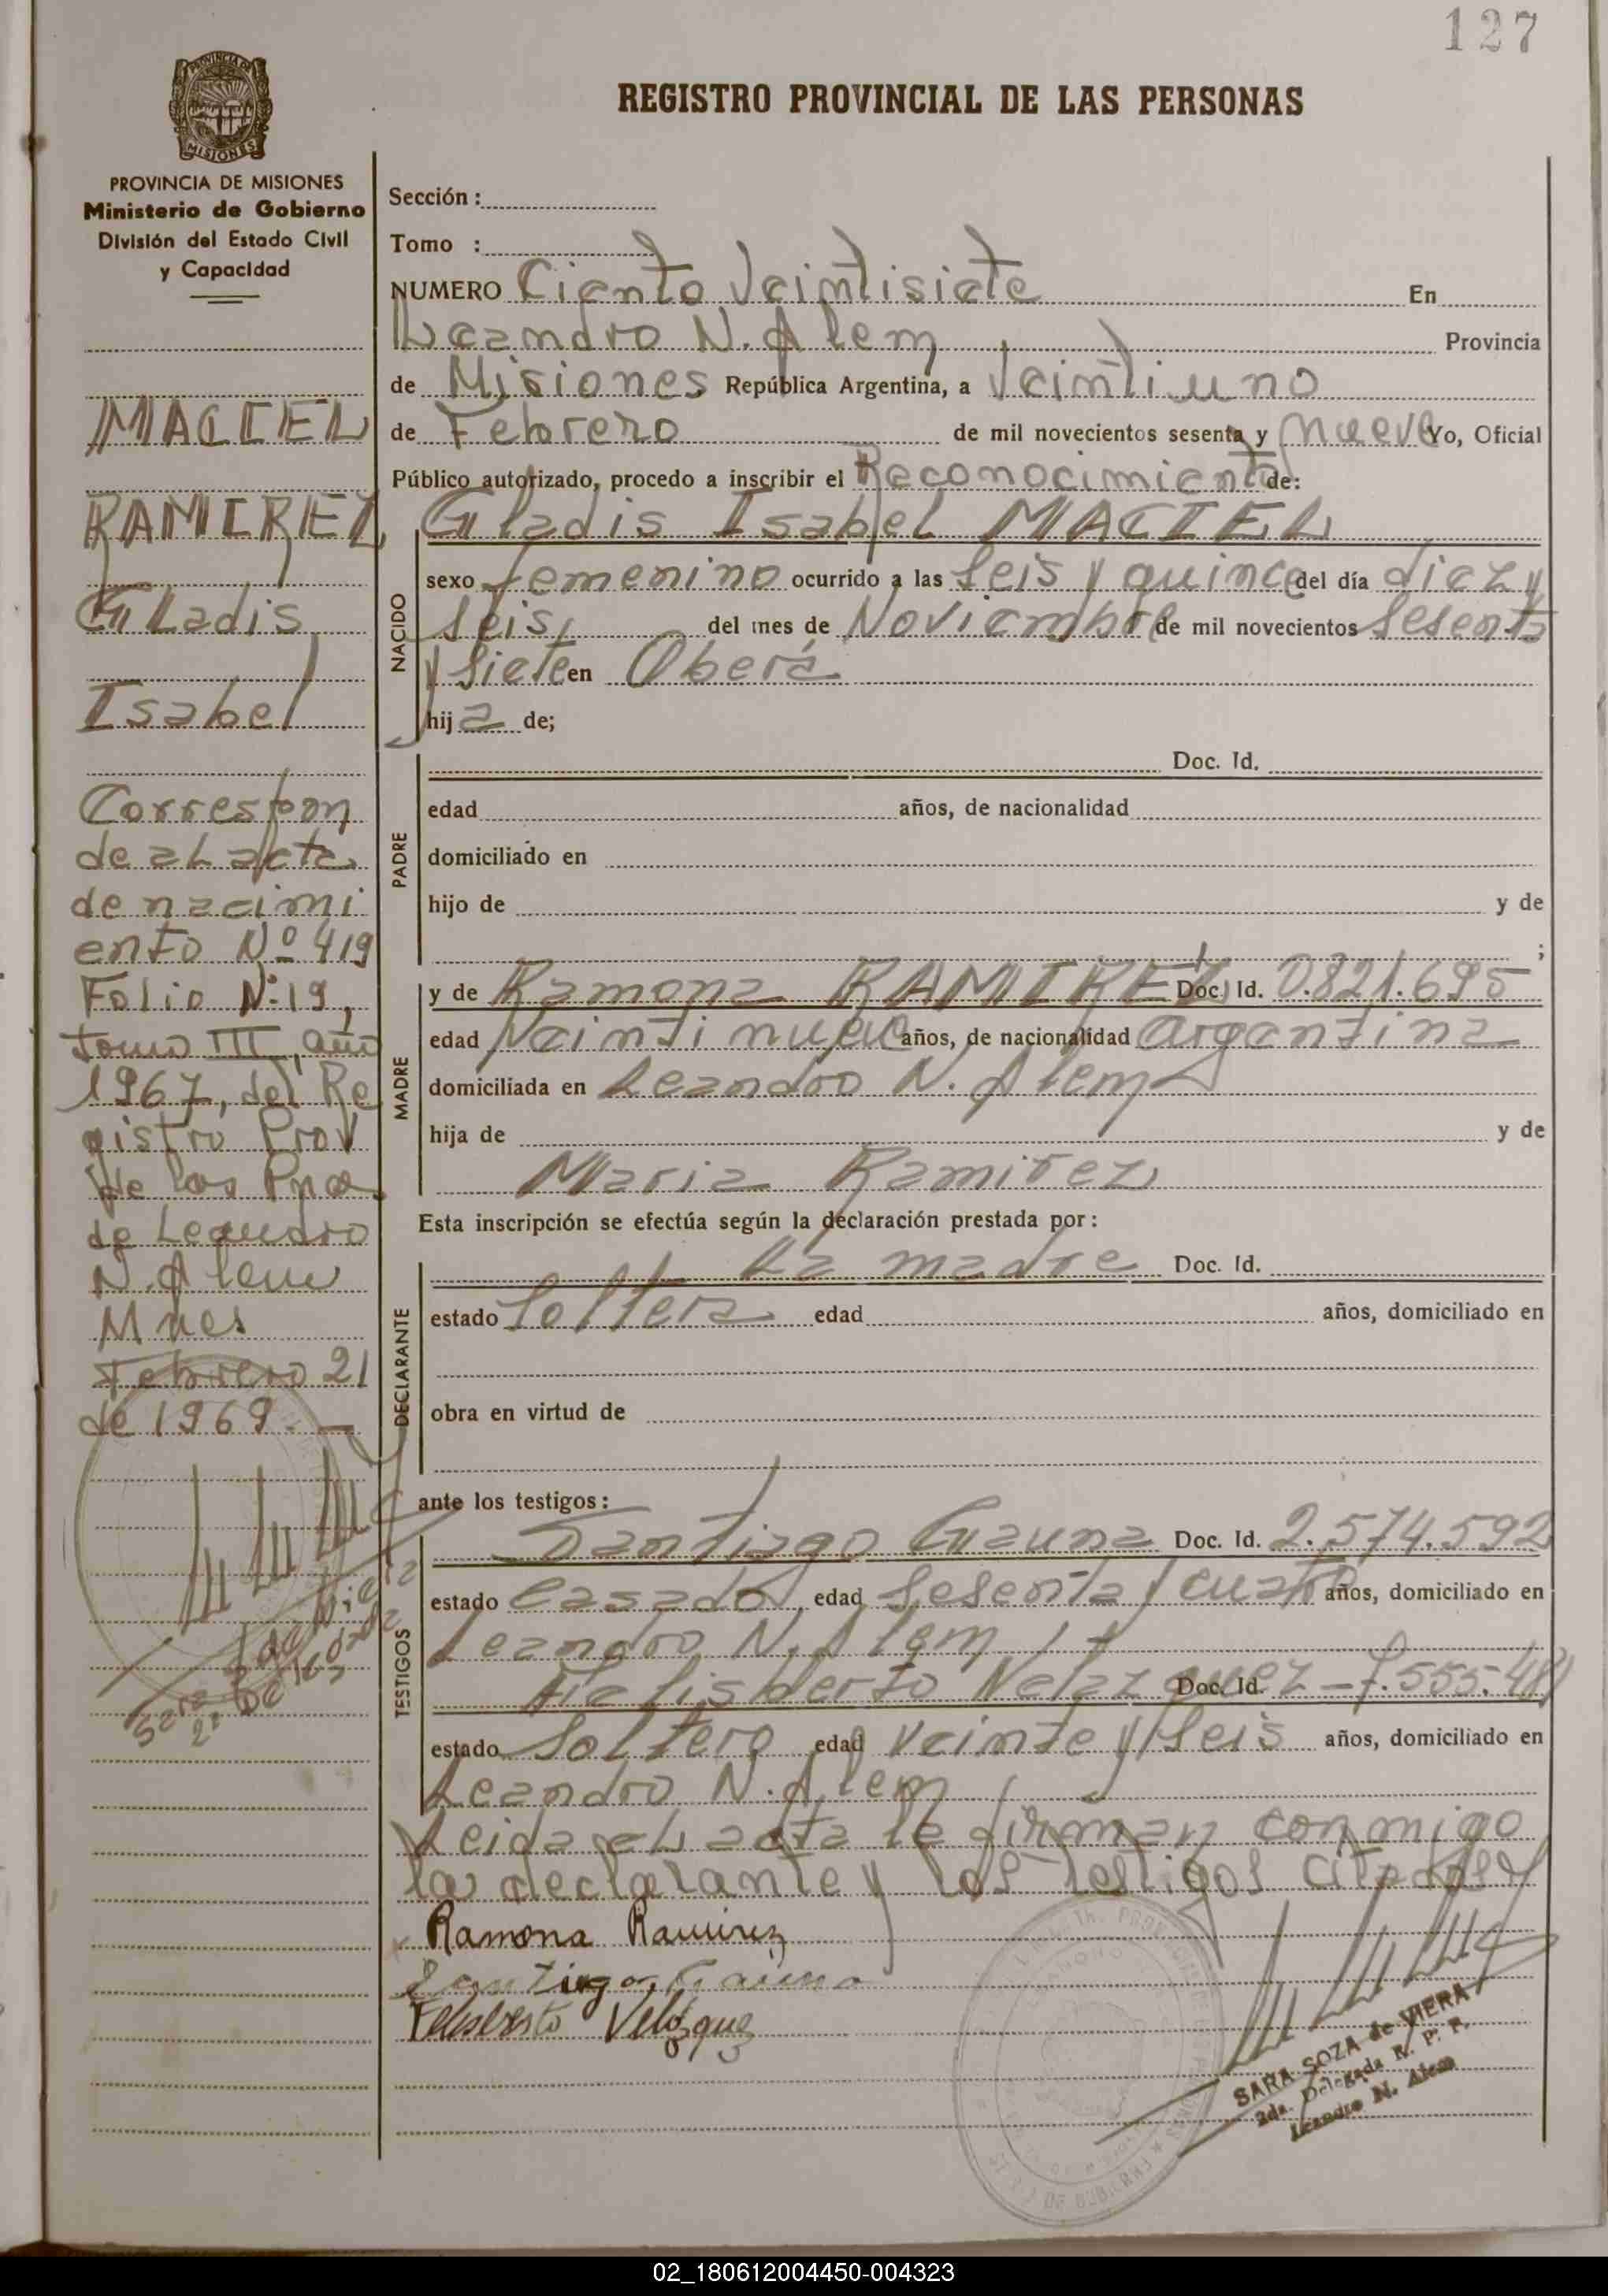 127
REGISTRO PROVINCIAL DE LAS PERSONAS
PROVINCIA DE
MISIONES
PROVINCIA DE MISIONES
Ministerio de Gobierno
División del Estado Civil
y Capacidad
MACIEL
RAMIREZ
Gladis
Isabel
Correspon
de al acta
de nacimi
ento Nº 419
Folio Nº 19,
tomo III, año
1967, del Re
gistro Prov
de las Pnas
de Leandro
N. Alem
Mnes
Febrero 21
de 1969. —
Sección :
Tomo :
NUMERO Ciento Veintisiete En
Leandro N. Alem, Provincia
de Misiones República Argentina, a Veintiuno
de Febrero de mil novecientos sesenta y nueve Yo, Oficial
Público autorizado, procedo a inscribir el Reconocimiento de:
Gladis Isabel MACIEL
NACIDO
sexo femenino ocurrido a las seis y quince del día diez y
seis, del mes de Noviembre de mil novecientos sesenta
y siete en Oberá
hij a de;
PADRE
Doc. Id.
edad años, de nacionalidad
domiciliado en
hijo de y de
;
MADRE
y de Ramona RAMIREZ Doc. Id. 0.821.695
edad Veintinueve años, de nacionalidad argentina
domiciliada en Leandro N. Alem
hija de y de
Maria Ramirez
Esta inscripción se efectúa según la declaración prestada por:
DECLARANTE
La madre Doc. Id.
estado soltera edad años, domiciliado en
obra en virtud de
ante los testigos:
TESTIGOS
Santiago Gauna Doc. Id. 2.574.592
estado casado, edad sesenta y cuatro años, domiciliado en
Leandro N. Alem
Felisberto Velazquez Doc. Id. 7.555.481
estado Soltero edad veinte y seis años, domiciliado en
Leandro N. Alem
Leida el acta la firman conmigo
la declarante y los testigos citados
Ramona Ramirez
Santiago Gauna
Felisberto Velázquez
SARA SOZA de VIERA
2da. Delegada R. P. P.
Leandro N. Alem
02_180612004450-004323